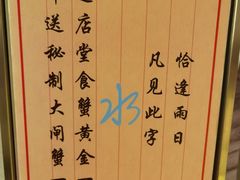 恰逢雨日
凡见此字
水
店堂食蟹黄金
送秘制大闸蟹